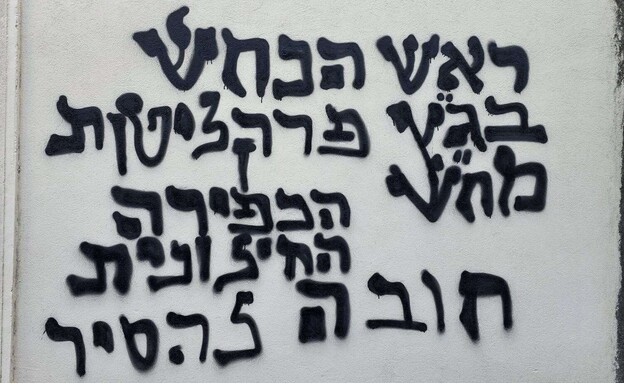 ראש הנחש
בג"ץ פרקליטת
מח"ש
הכפירה
החילונית
חובה להסיר